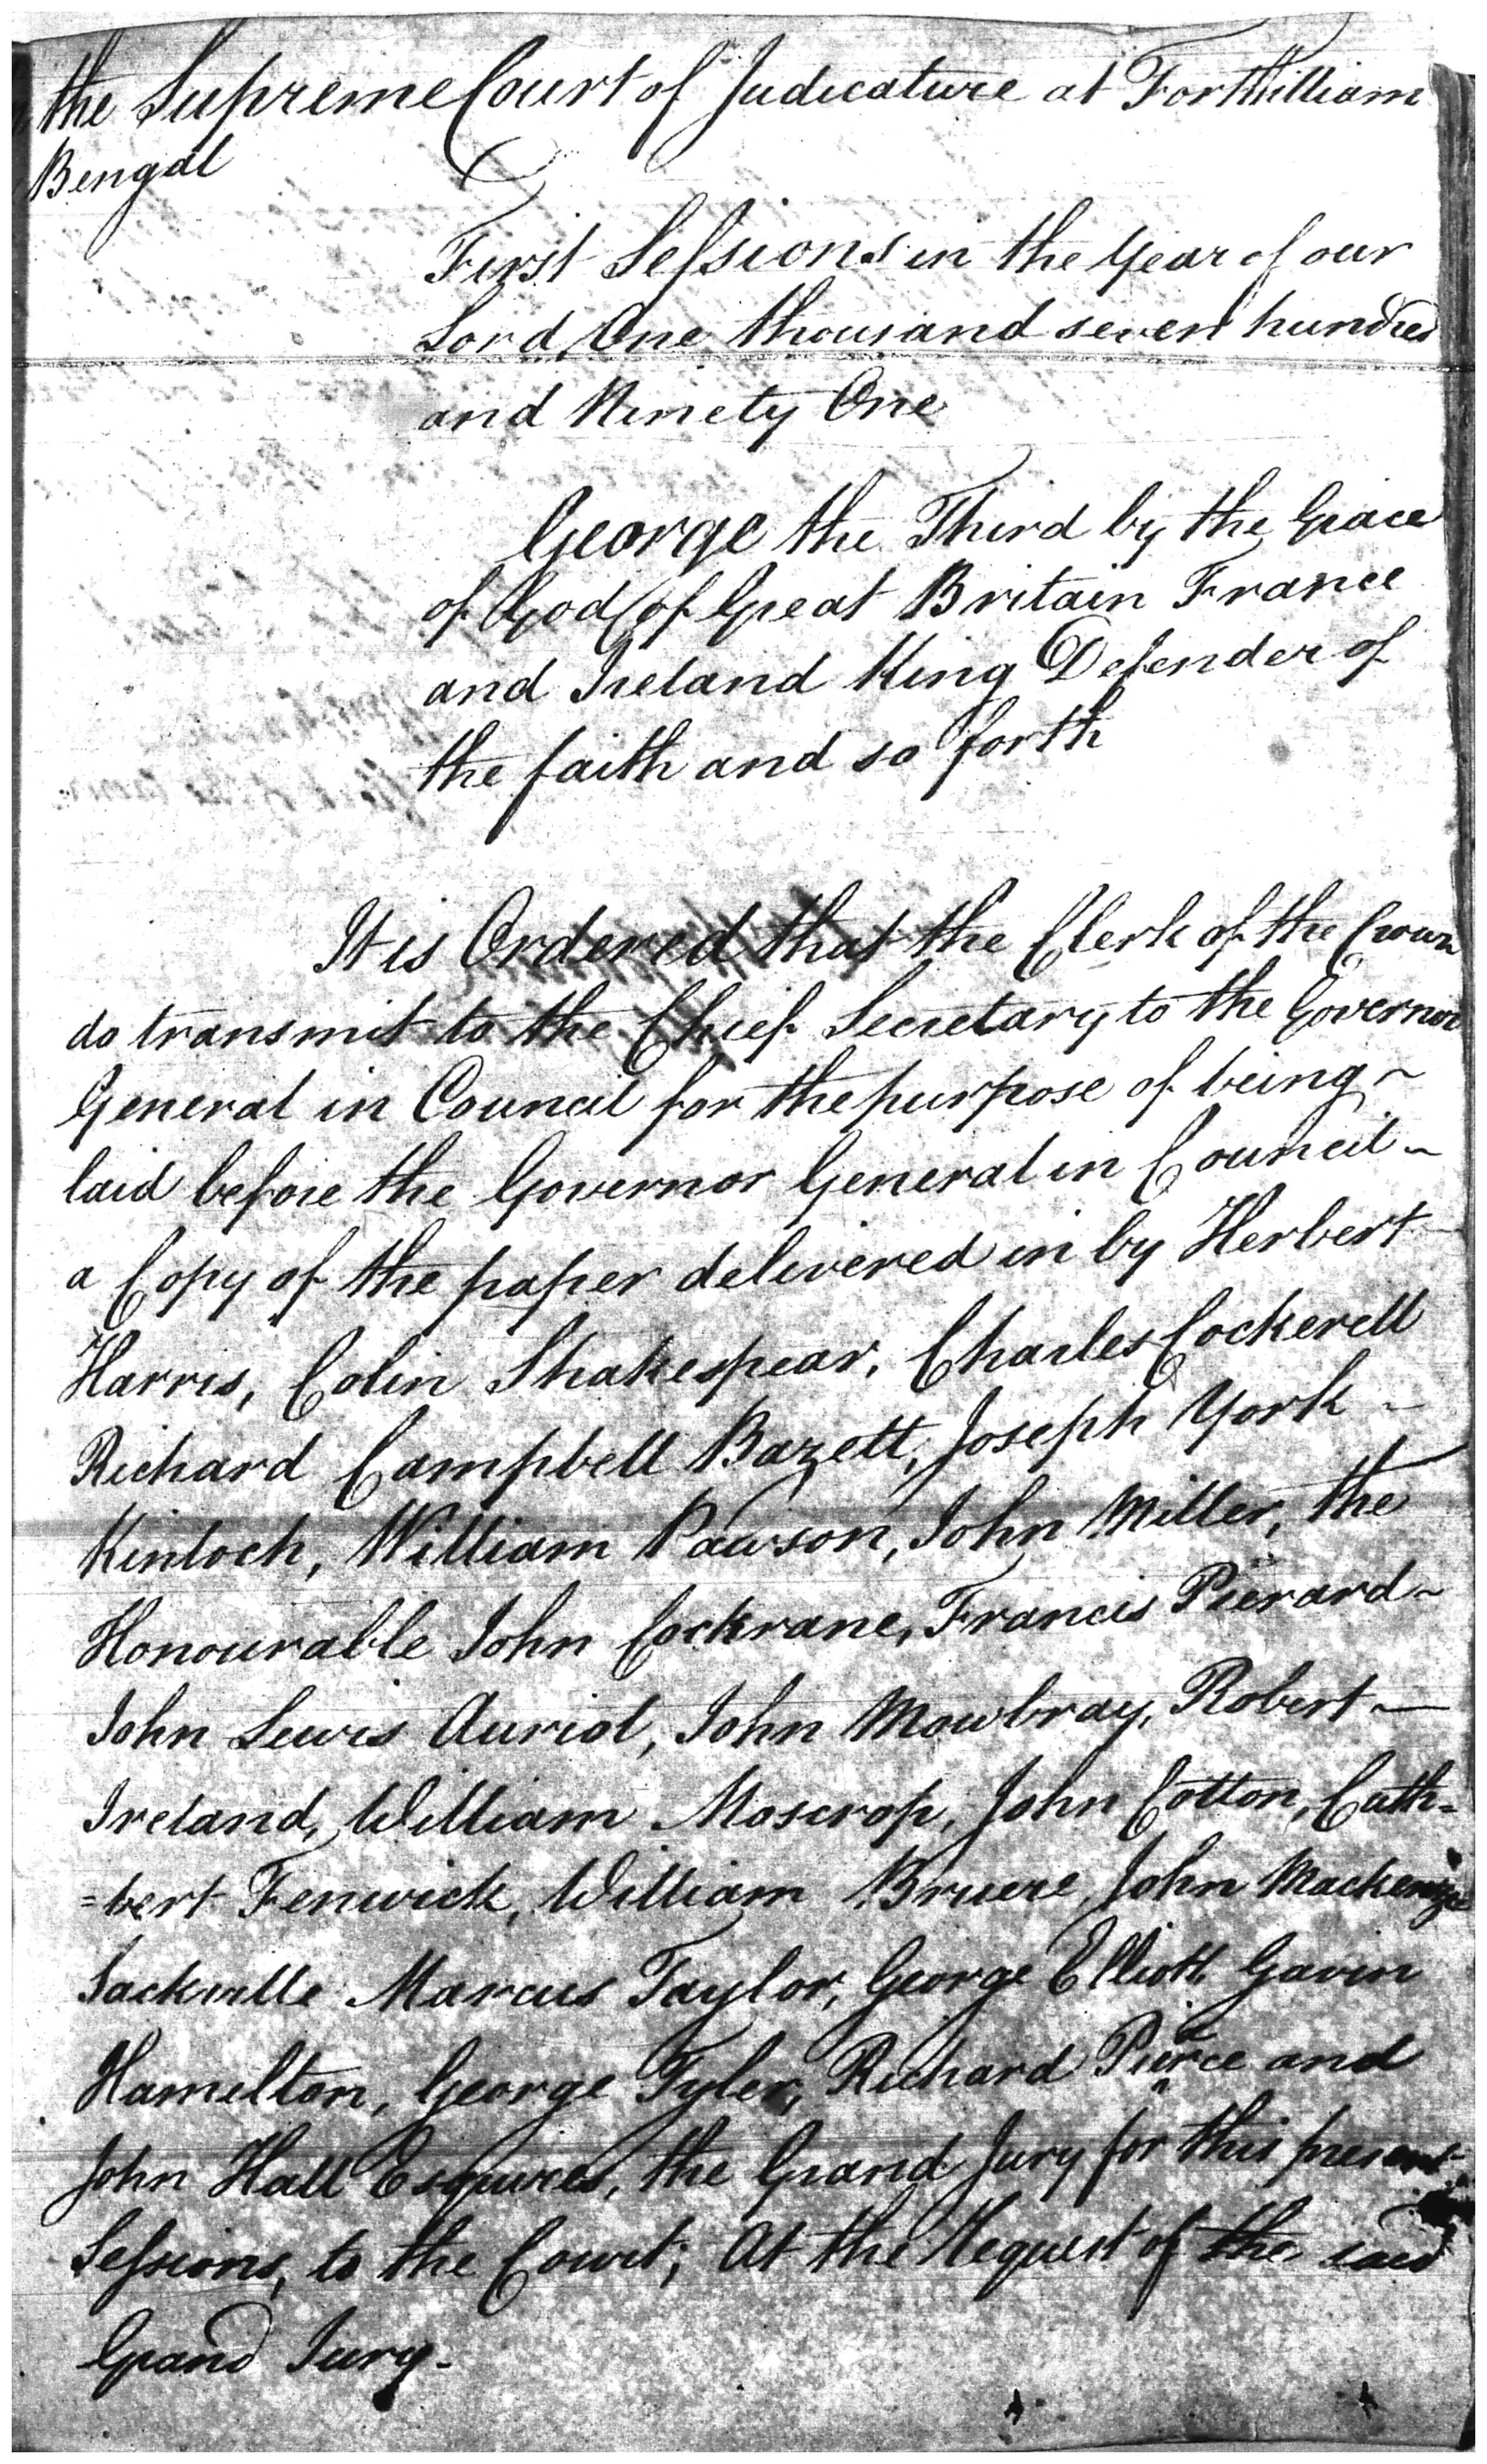 the Supreme Court of Judicature at Fort William
Bengal
First Sessions in the Year of our
Lord One thousand seven hundred
and Ninety One
George the Third by the Grace
of God of Great Britain France
and Ireland King Defender of
the faith and so forth
It is Ordered that the Clerk of the Crown
do transmit to the Chief Secretary to the Governor
General in Council for the purpose of being ~
laid before the Governor General in Council ~
a Copy of the paper delivered in by Herbert
Harris, Colin Shakespear, Charles Cockerell
Richard Campbell Bazett, Joseph York ~
Kinloch, William Pawson, John Miller, the
Honourable John Cockrane, Francis Pierard ~
John Lewis Auriol, John Mowbray, Robert —
Ireland, William Moscrop, John Cotton, Cuth=
=bert Fenwick, William Bruere, John Mackenzie
Sackville Marcus Taylor, George Elliott Gavin
Hamelton, George Tyler, Richard Pierce and
John Hall Esquires, the Grand Jury for this present
Sessions, to the Court; At the Request of the said
Grand Jury -